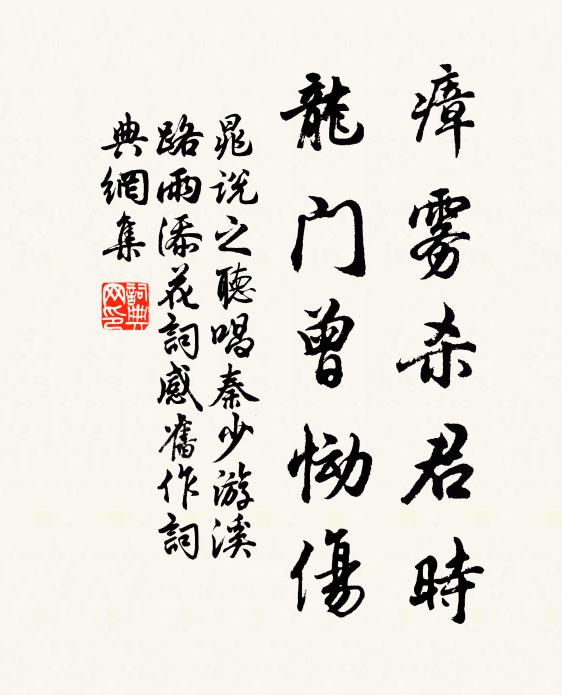 瘴雾杀君时
龍门曾恸傷
晁说之聽唱秦少游溪
路雨添花詞感舊作詞
典網集
詞典網印